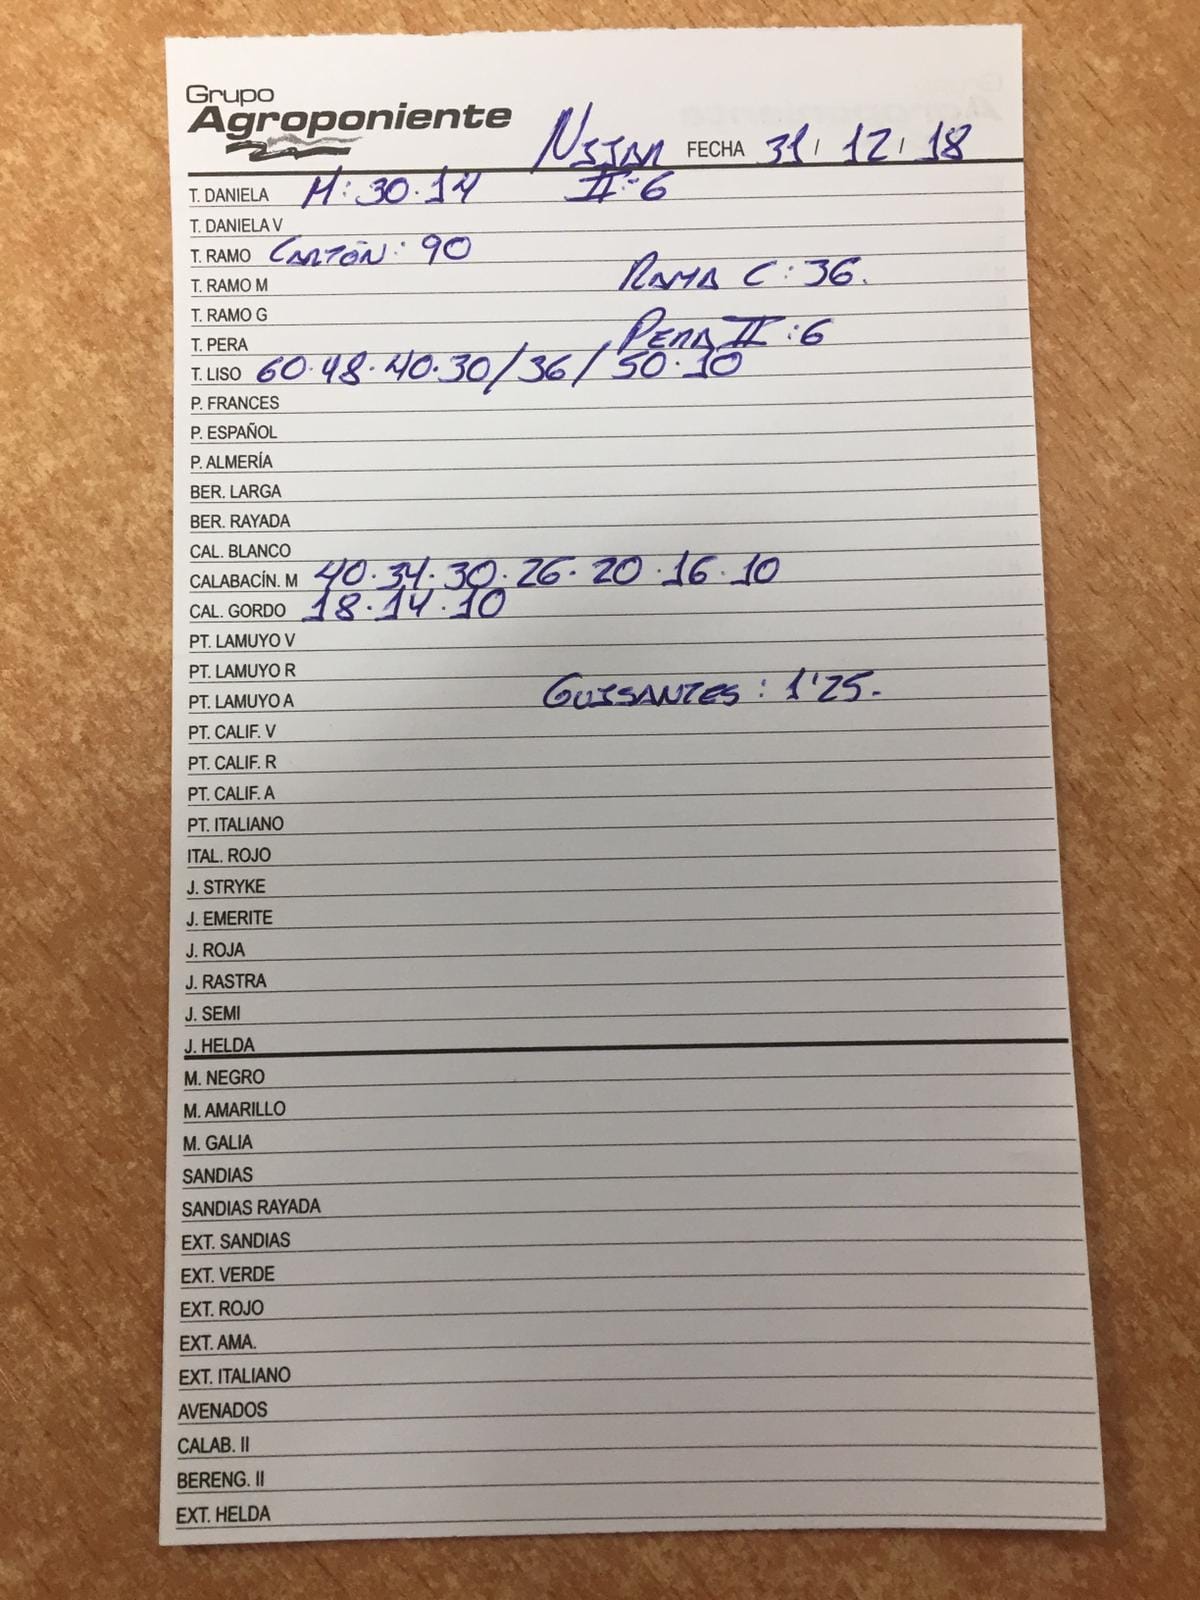 Grupo
Agroponiente
NIJAR FECHA 31 / 12 / 18
T. DANIELA M: 30.14 II-6
T. DANIELA V
T. RAMO CARTÓN: 90
T. RAMO M RAMA C: 36.
T. RAMO G
T. PERA PERA II: 6
T. LISO 60.48.40.30/36/50.10
P. FRANCES
P. ESPAÑOL
P. ALMERÍA
BER. LARGA
BER. RAYADA
CAL. BLANCO
CALABACÍN. M 40.34.30.26.20.16.10
CAL. GORDO 18.14.10
PT. LAMUYO V
PT. LAMUYO R
PT. LAMUYO A GUISANTES: 1'25.
PT. CALIF. V
PT. CALIF. R
PT. CALIF. A
PT. ITALIANO
ITAL. ROJO
J. STRYKE
J. EMERITE
J. ROJA
J. RASTRA
J. SEMI
J. HELDA
M. NEGRO
M. AMARILLO
M. GALIA
SANDIAS
SANDIAS RAYADA
EXT. SANDIAS
EXT. VERDE
EXT. ROJO
EXT. AMA.
EXT. ITALIANO
AVENADOS
CALAB. II
BERENG. II
EXT. HELDA